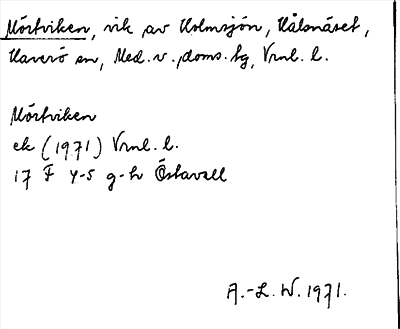 Mörtviken, vik av Holmsjön, Hålsnäset,
Haverö sn, Med. v. doms. tg, Vrnl. l.
Mörtviken
ek (1971) Vrnl. l.
17 F 4-5 g-h Östavall
A.-L. W. 1971.